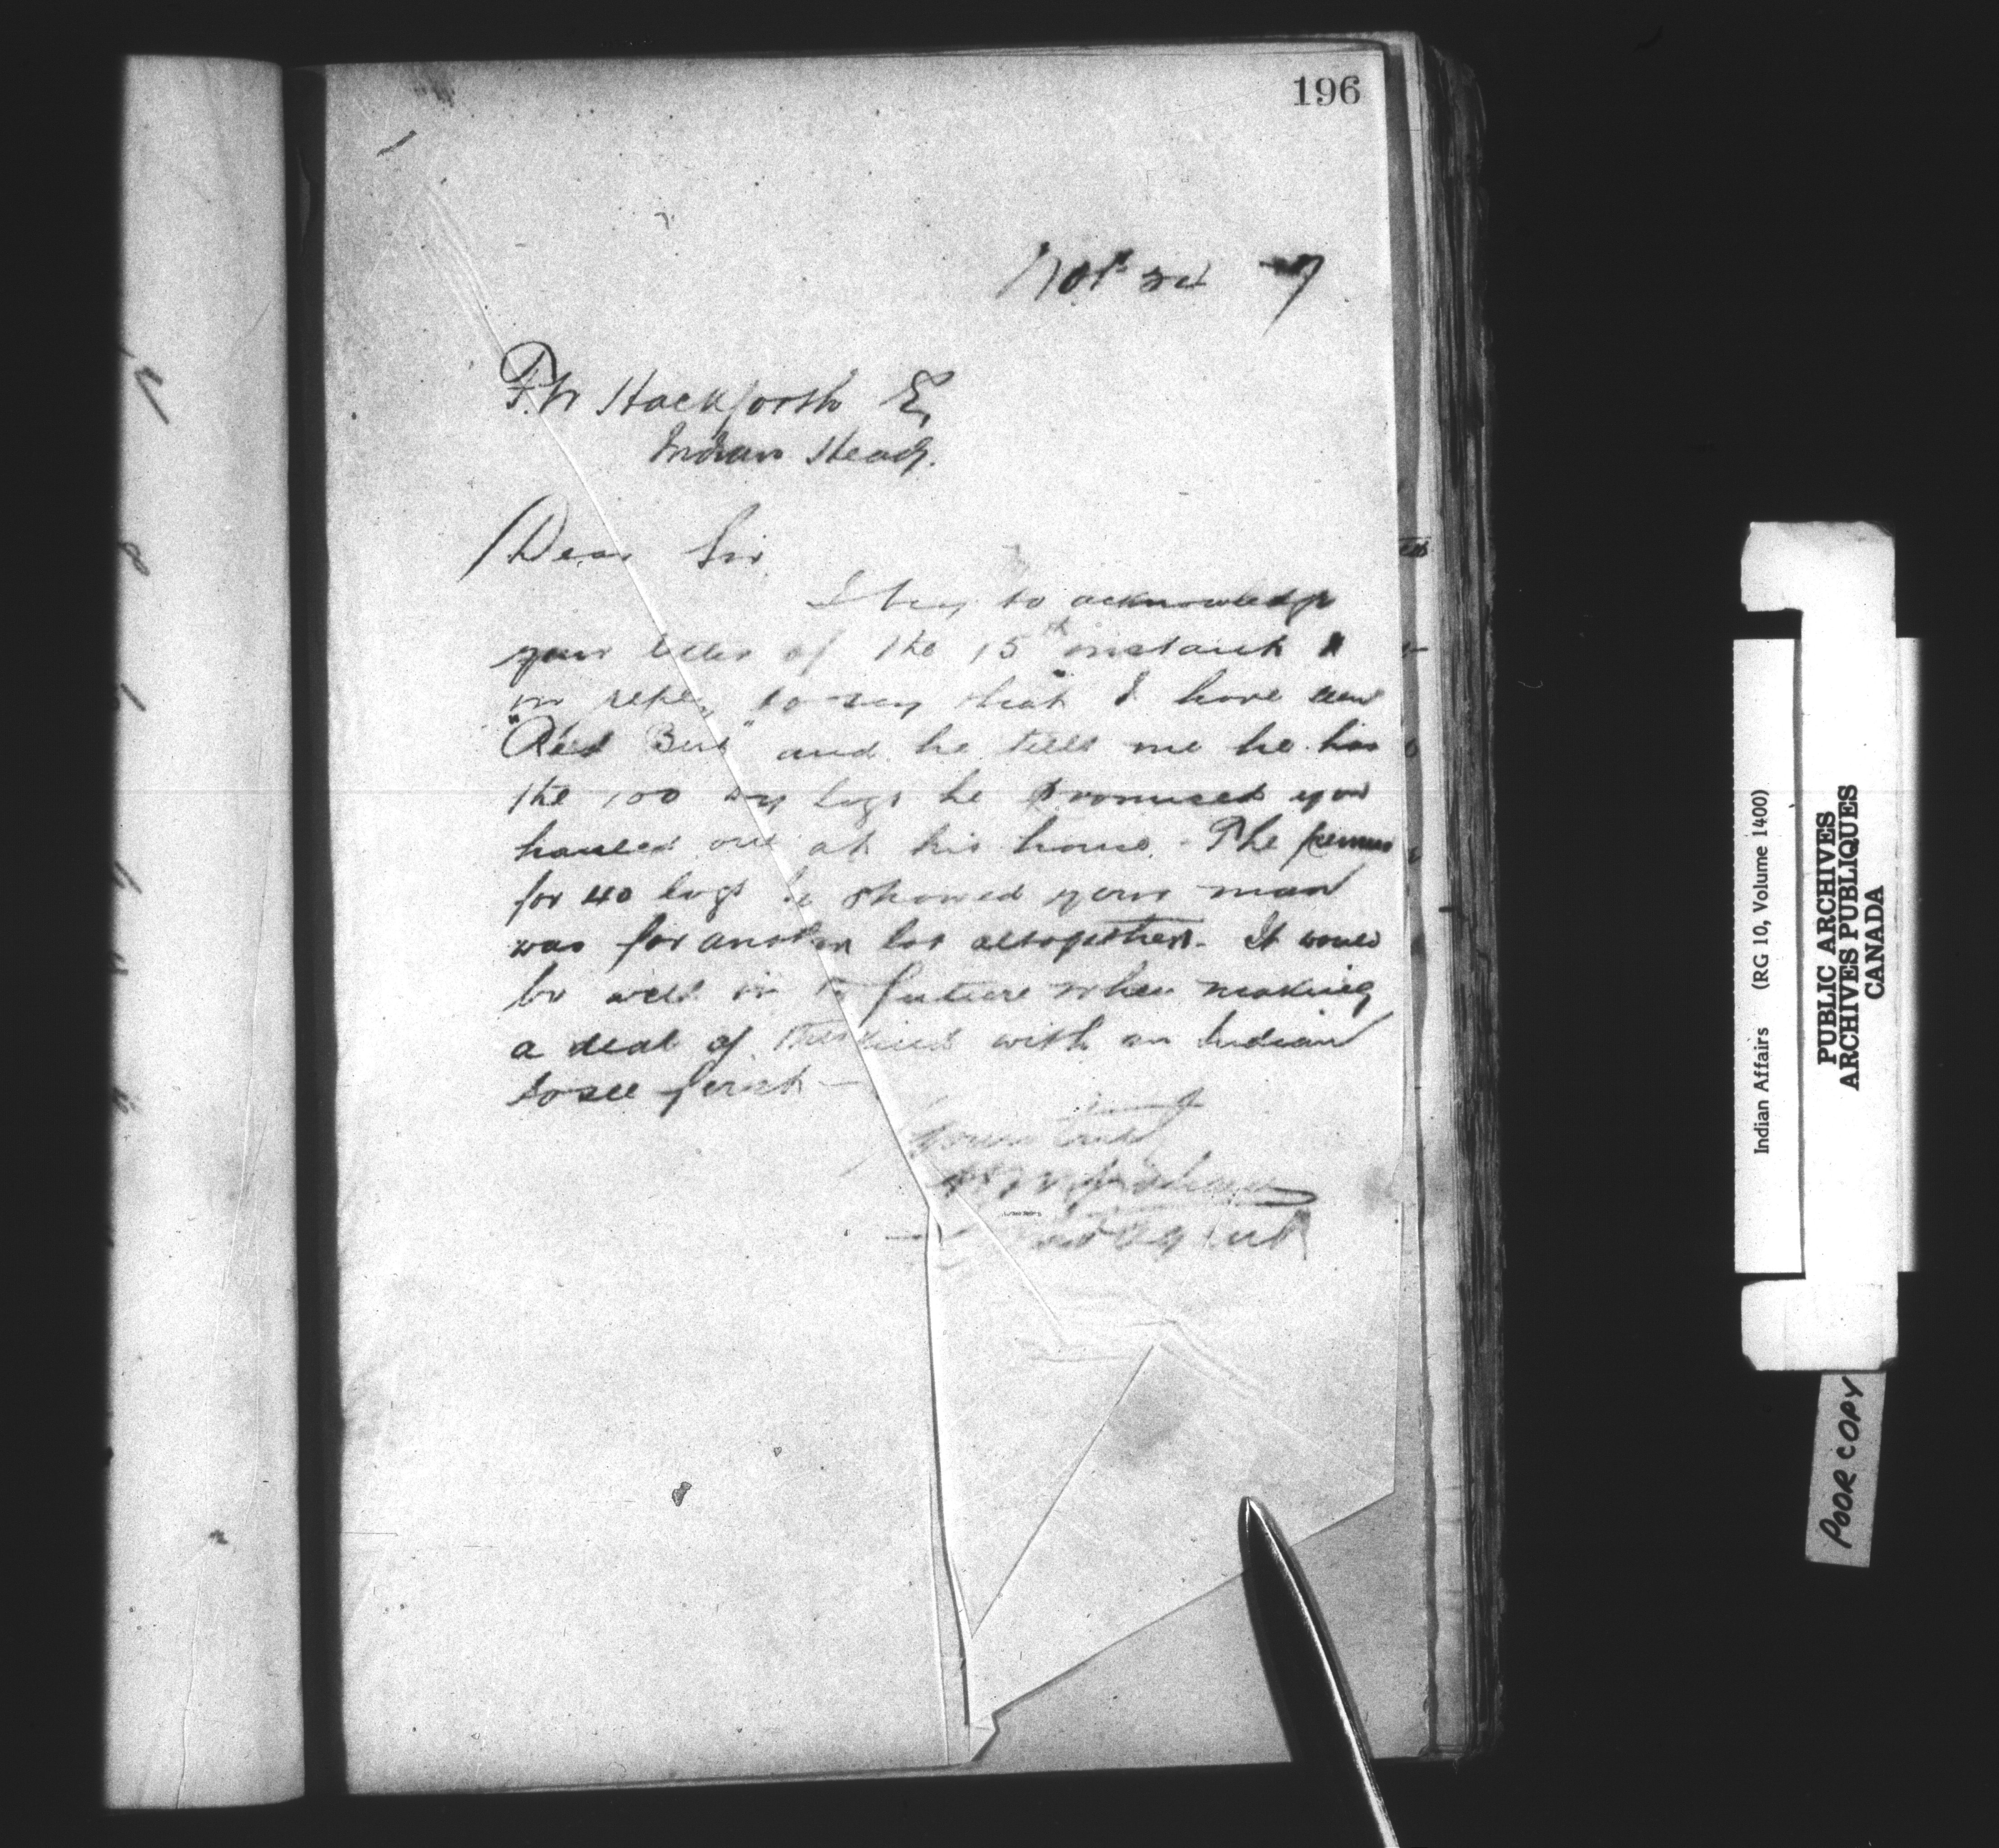 196
F.W Hackforth E,
Indian Head.
Dear Sir
I beg to acknowledge
your letter of the 15th instant &
in reply to say that I have seen
"Red Bird" and he tells me he has
the 100 dry logs he promised you
hauled out at his house. The permit
for 40 logs he showed your man
was for another lot altogether. It would
be well in future when making
a deal of this kind with an Indian
to see first
Yours truly
Agent
Indian Affairs (RG 10, Volume 1400)
PUBLIC ARCHIVES
ARCHIVES PUBLIQUES
CANADA
POOR COPY